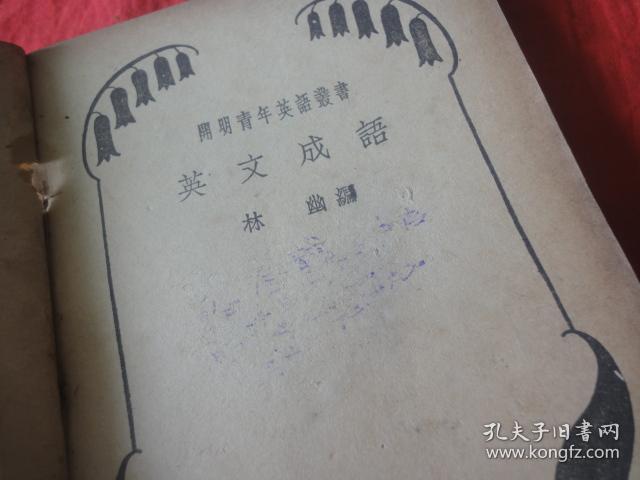 開明青年英語叢書
英文成語
林幽編
孔夫子旧书网
www.kongfz.com